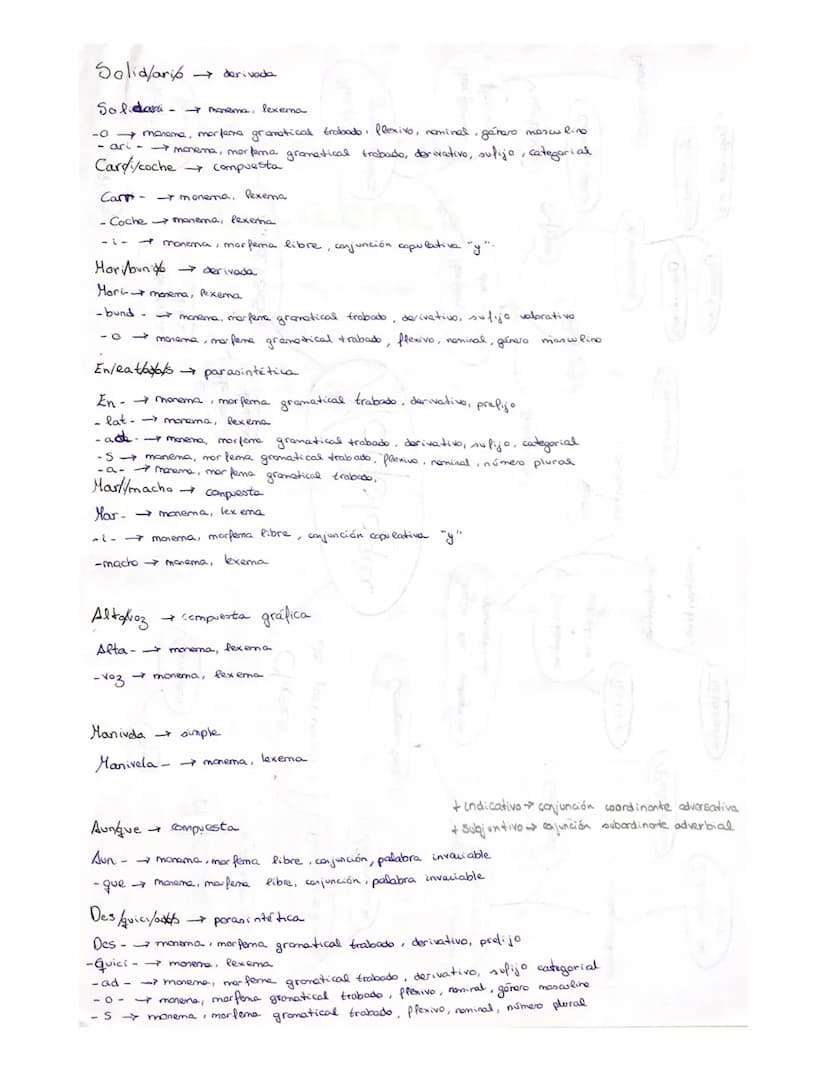 Solid/ari/o → derivada
Solidari - → monema, lexema
-o → monema, morfema gramatical trabado, flexivo, nominal, género masculino
- ari - → monema, morfema gramatical trabado, derivativo, sufijo, categorial
Carr/i/coche → compuesta
Carr - → monema, lexema
- Coche → monema, lexema
- i - → monema, morfema libre, conjunción copulativa "y".
Mori/bun/o → derivada
Mori- → monema, lexema
- bund - → monema, morfema gramatical trabado, derivativo, sufijo valorativo
- o → monema, morfema gramatical trabado, flexivo, nominal, género masculino
→ parasintética
En - → monema, morfema gramatical trabado, derivativo, prefijo
- lat - → monema, lexema
- ad - → monema, morfema gramatical trabado, derivativo, sufijo, categorial
- S → monema, morfema gramatical trabado, flexivo, nominal, número plural
- a - → monema, morfema gramatical trabado,
Mar/i/macho → compuesta
Mar - → monema, lexema
- i - → monema, morfema libre, conjunción copulativa "y"
-macho → monema, lexema
Alta/voz → compuesta gráfica
Alta - → monema, lexema
- voz → monema, lexema
Manivela → simple
Manivela - → monema, lexema
+ indicativo → conjunción coordinante adversativa
+ subjuntivo → conjunción subordinante adverbial
Aun/que → compuesta
Aun - → monema, morfema libre, conjunción, palabra invariable
- que → monema, morfema libre, conjunción, palabra invariable
Des/quici/ad/o/s → parasintética
Des - → monema, morfema gramatical trabado, derivativo, prefijo
-Quici - → monema, lexema
- ad - → monema, morfema gramatical trabado, derivativo, sufijo categorial
- o - → monema, morfema gramatical trabado, flexivo, nominal, género masculino
- S → monema, morfema gramatical trabado, flexivo, nominal, número plural